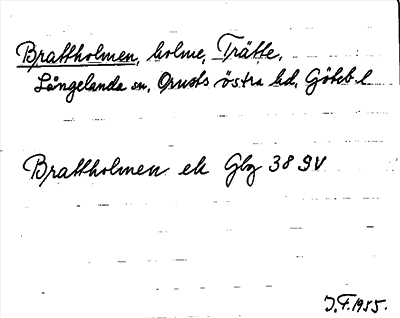 Brattholmen, holme, Trätte,
Långelanda sn, Orusts östra hd, Göteb. l
Brattholmen ek Gbg 38 SV
J.F. 1955.